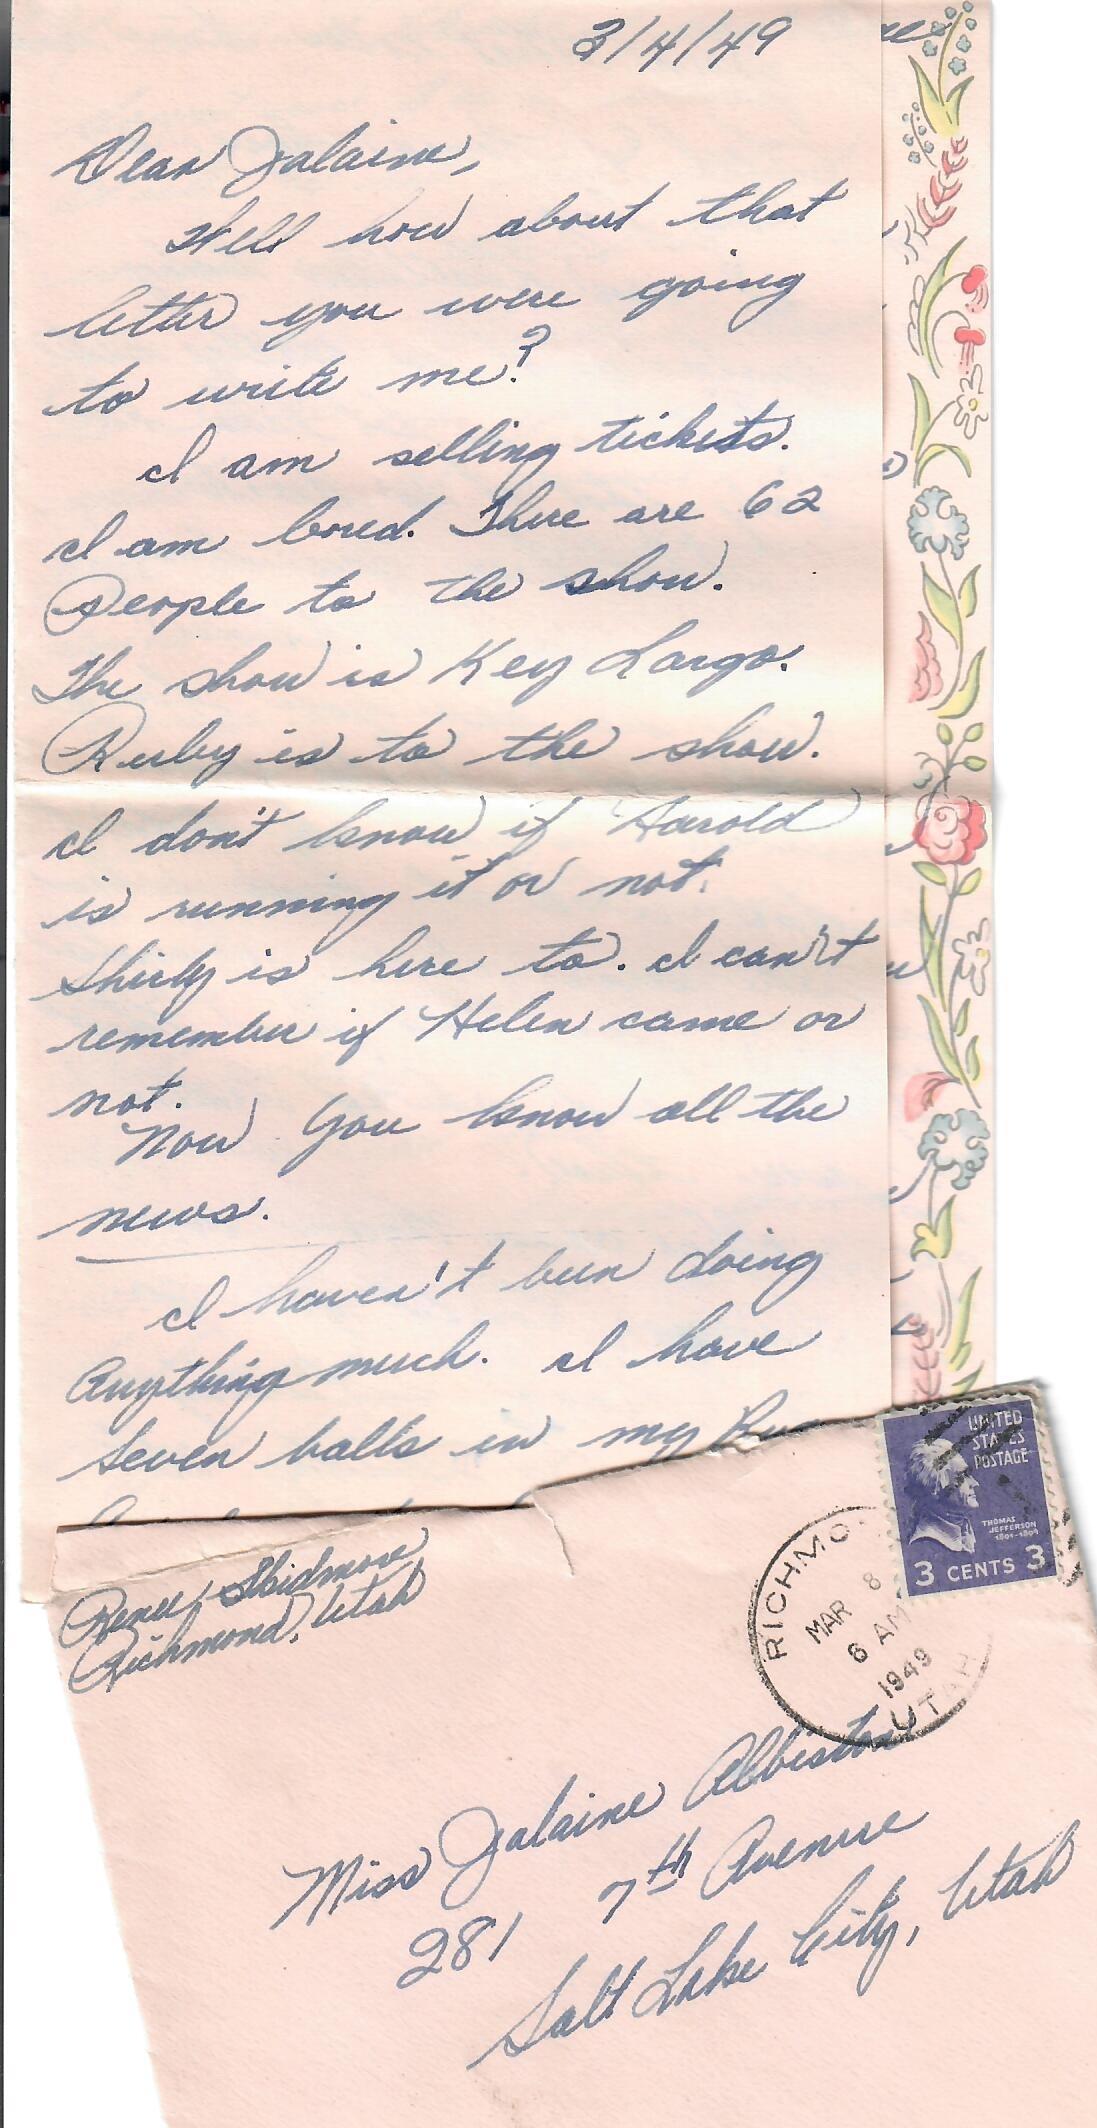 3/4/49
Dear Jalaine,
Well how about that
letter you were going
to write me?
I am selling tickets.
I am bored. There are 62
People to the show.
The show is Key Largo.
Ruby is to the show.
I don't know if Harold
is running it or not.
Shirly is here to. I can't
remember if Helen came or
not.
Now you know all the
news.
I haven't been doing
Anything much. I have
seven balls in my
Renee Skidmore
Richmond, Utah
UNITED
STATES
POSTAGE
THOMAS
JEFFERSON
1801-1809
3 CENTS 3
RICHMO
MAR 8
6 AM
1949
UTAH
Miss Jalaine Albiston
281 7th Avenue
Salt Lake City, Utah